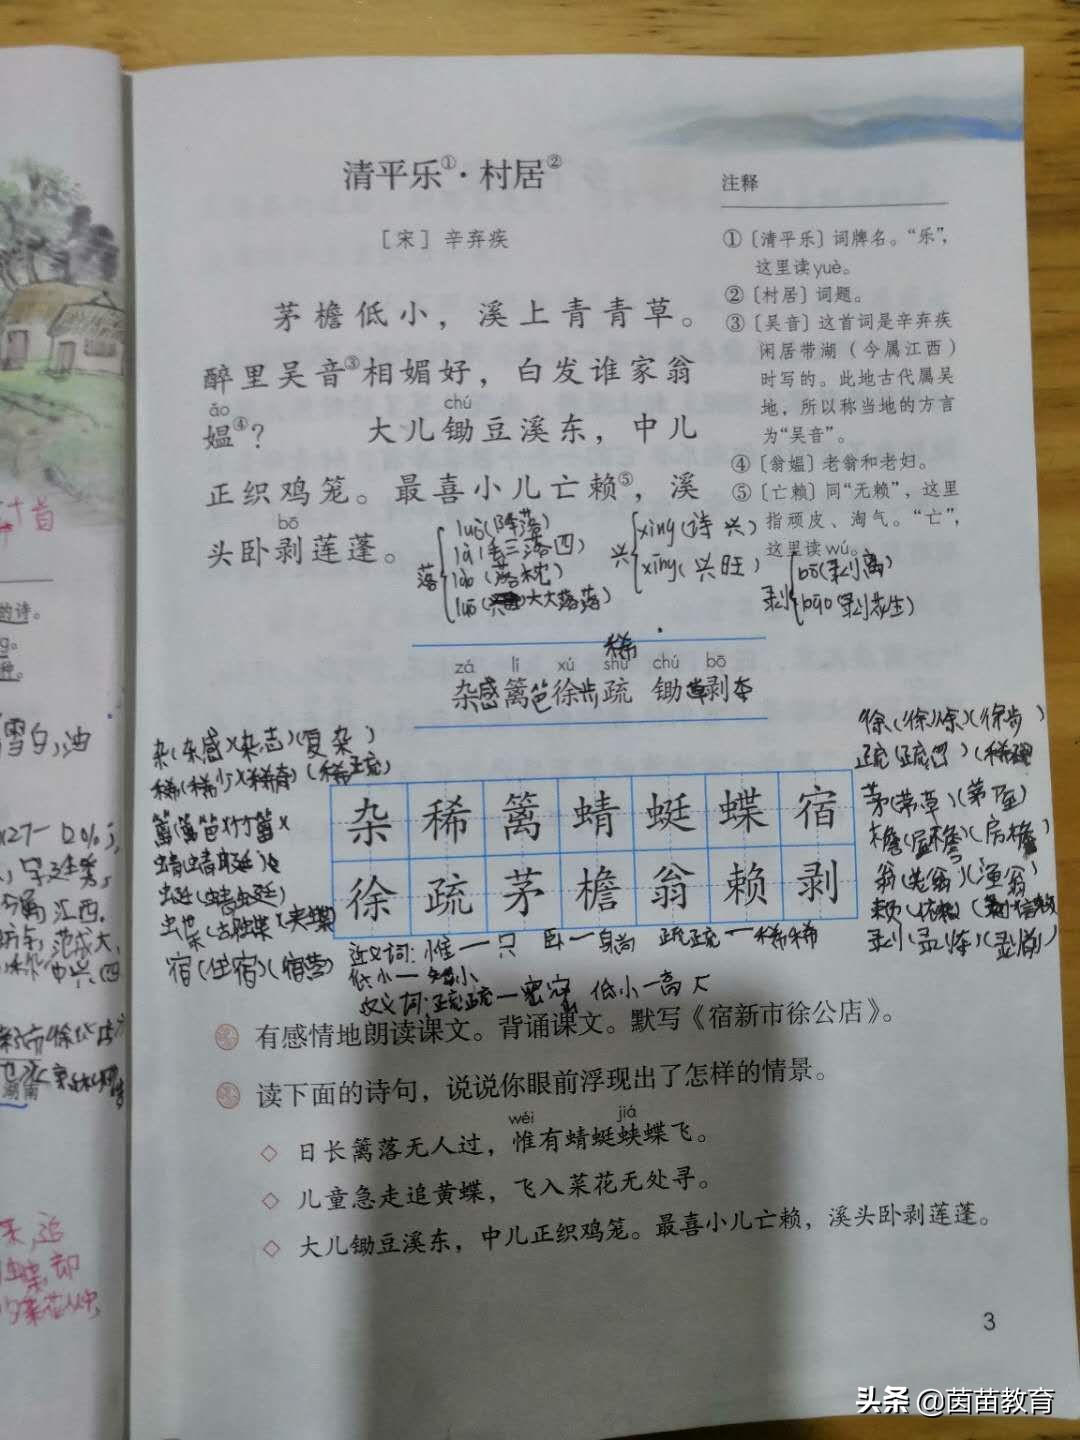 清平乐①·村居②
[宋] 辛弃疾
茅檐低小，溪上青青草。
醉里吴音③相媚好，白发谁家翁
ǎo chú
媪④？ 大儿锄豆溪东，中儿
正织鸡笼。最喜小儿亡赖⑤，溪
bō
头卧剥莲蓬。
注释
①〔清平乐〕词牌名。“乐”，
这里读yuè。
②〔村居〕词题。
③〔吴音〕这首词是辛弃疾
闲居带湖（今属江西）
时写的。此地古代属吴
地，所以称当地的方言
为“吴音”。
④〔翁媪〕老翁和老妇。
⑤〔亡赖〕同“无赖”，这里
指顽皮、淘气。“亡”，
这里读wú。
落
luò(降落)
là(丢三落四)
lào(落枕)
luō(大大落落)
兴
xìng(诗兴)
xīng(兴旺)
剥
bō(剥离)
bāo(剥花生)
稀
zá lí xú shū chú bō
杂感篱笆徐步疏 锄草剥夺
杂(杂感)(杂志)(复杂)
稀(稀少)(稀奇)(稀疏)
篱(篱笆)(竹篱)
蜻(蜻蜓)
蜓(蜻蜓)
蝶(蝴蝶)(夹蝶)
宿(住宿)(宿营)
徐(徐徐)(徐步)
茅(茅草)(茅屋)
檐(屋檐)(房檐)
翁(老翁)(渔翁)
赖(依赖)
杂稀篱蜻蜓蝶宿
徐疏茅檐翁赖剥
近义词：惟—只 卧—躺 疏疏—稀稀
低小—矮小
反义词：疏疏—密密 低小—高大
有感情地朗读课文。背诵课文。默写《宿新市徐公店》。
读下面的诗句，说说你眼前浮现出了怎样的情景。
wéi jiá
◇ 日长篱落无人过，惟有蜻蜓蛱蝶飞。
◇ 儿童急走追黄蝶，飞入菜花无处寻。
◇ 大儿锄豆溪东，中儿正织鸡笼。最喜小儿亡赖，溪头卧剥莲蓬。
3
头条 @茵苗教育